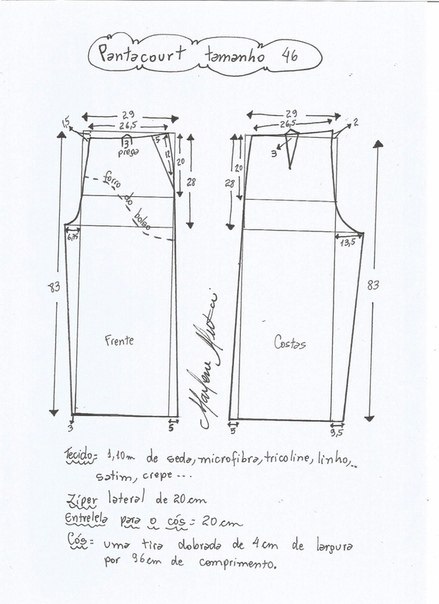 Pantacourt tamanho 46
29
26,5
1,5
3
prega
5
12
20
28
forro do bolso
6,75
83
Frente
3
5
29
26,5
2
3
20
28
13,5
83
Costas
5
3,5
Marlene Mukai
Tecido= 1,10m de seda, microfibra, tricoline, linho,
satim, crepe ...
Zíper lateral de 20cm
Entretela para o cós = 20cm
Cós= uma tira dobrada de 4cm de largura
por 96cm de comprimento.